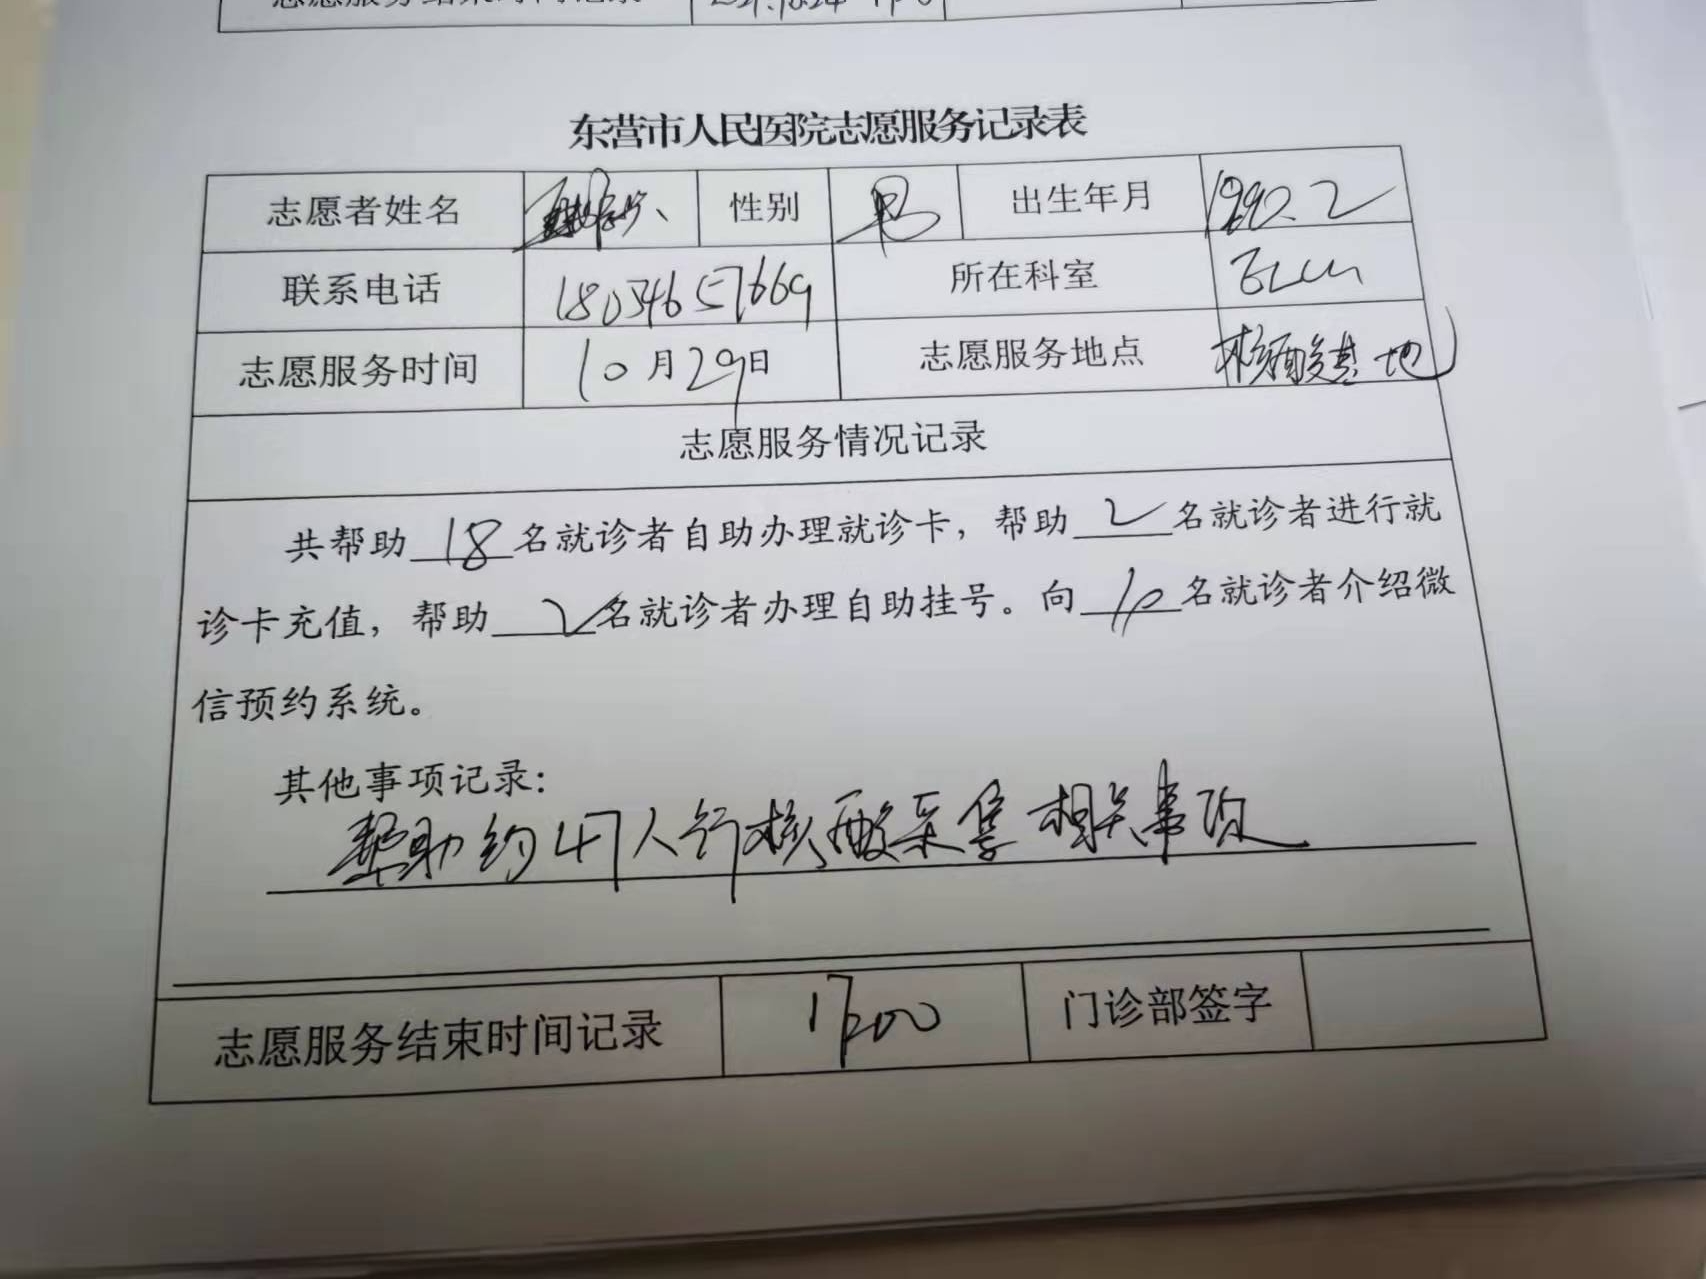 志愿服务结束时间记录
东营市人民医院志愿服务记录表
志愿者姓名 性别 男 出生年月 1990.2
联系电话 18034657669 所在科室 EICU
志愿服务时间 10月29日 志愿服务地点 核酸基地
志愿服务情况记录
共帮助18名就诊者自助办理就诊卡，帮助2名就诊者进行就
诊卡充值，帮助2名就诊者办理自助挂号。向10名就诊者介绍微
信预约系统。
其他事项记录：
帮助约47人行核酸采集相关事项
志愿服务结束时间记录 17200 门诊部签字